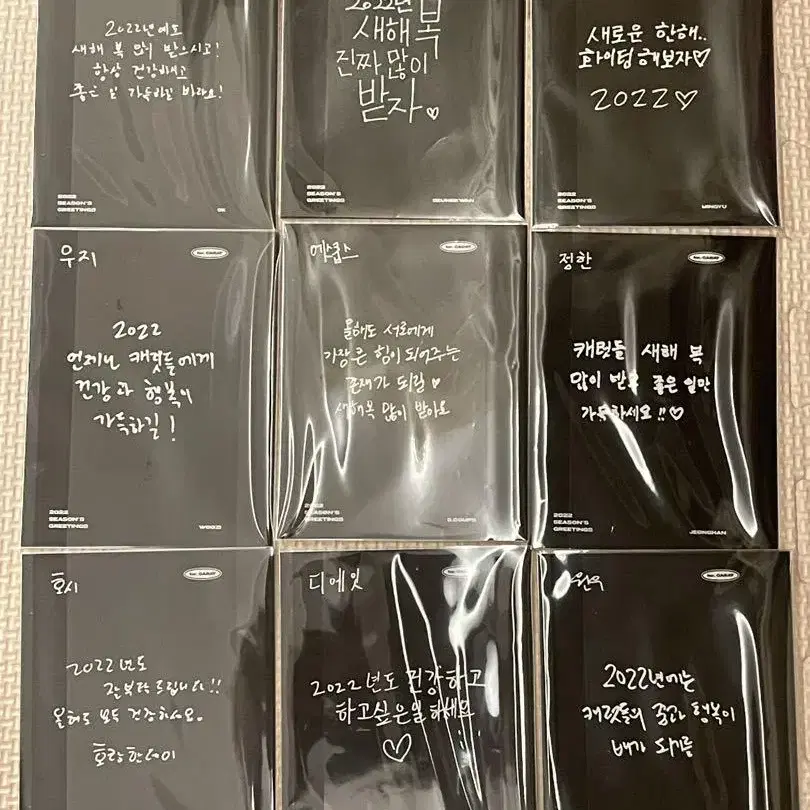 2022년에도
새해 복 많이 받으시고!
항상 건강하고
좋은 일 가득하길 바라요!
2022
SEASON'S
GREETINGS
DK
2022년
새해복
진짜많이
받자♡
2022
SEASON'S
GREETINGS
SEUNGKWAN
새로운 한해..
화이팅해보자♡
2022♡
2022
SEASON'S
GREETINGS
MINGYU
우지
for. CARAT
2022
언제나 캐럿들에게
건강과 행복이
가득하길!
2022
SEASON'S
GREETINGS
WOOZI
에스쿱스
for. CARAT
올해도 서로에게
가장 큰 힘이 되어주는
존재가 되길 ♡
새해복 많이 받아요
2022
SEASON'S
GREETINGS
S.COUPS
정한
for. CARAT
캐럿들 새해 복
많이 받고 좋은 일만
가득하세요!!♡
2022
SEASON'S
GREETINGS
JEONGHAN
호시
for. CARAT
2022년도
잘부탁드립니다!!
올해도 모두 건강하세요.
호랑한데이
디에잇
for. CARAT
2022년도 건강하고
하고싶은일 하세요
♡
원우
for. CARAT
2022년에는
캐럿들의 꿈과 행복이
배가 되기를